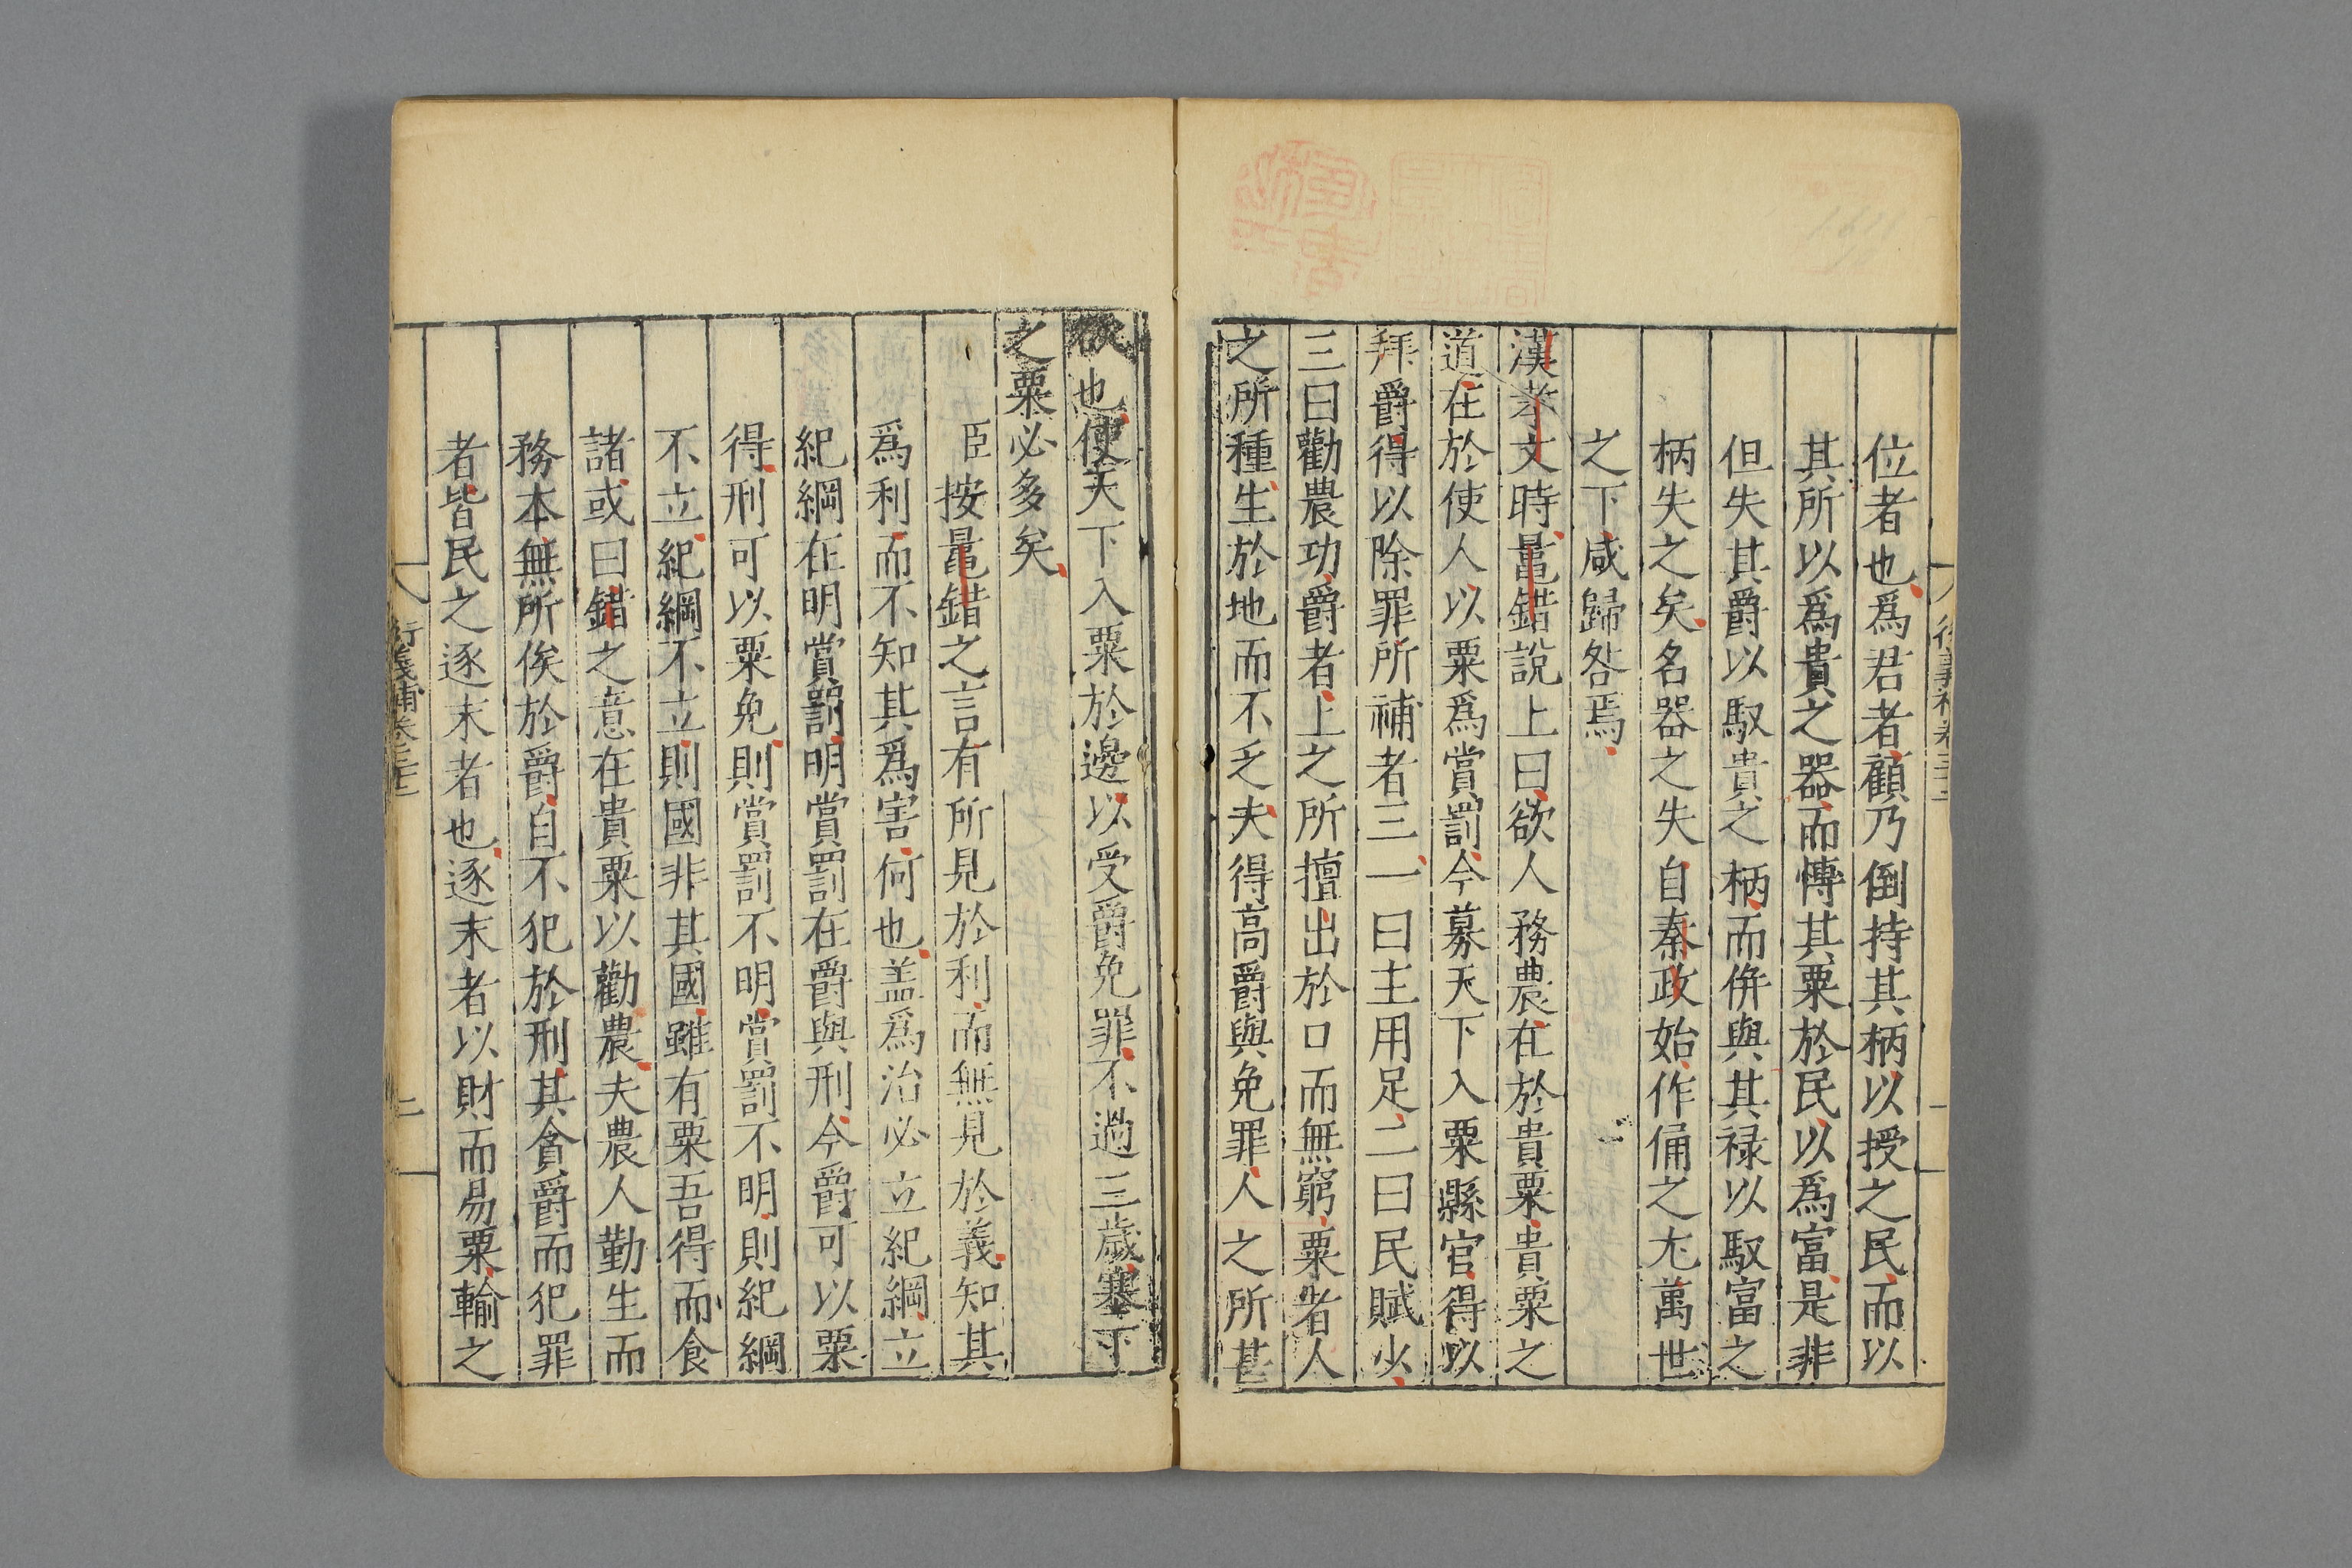 位者也爲君者顧乃倒持其柄以授之民而以
其所以爲貴之器而慱其粟於民以爲富是非
但失其爵以馭貴之柄而併與其禄以馭富之
柄失之矣名器之失自秦政始作俑之尤萬世
之下咸歸咎焉
漢孝文時鼂錯說上曰欲人務農在於貴粟貴粟之
道在於使人以粟爲賞罰今募天下入粟縣官得以
拜爵得以除罪所補者三一曰主用足二曰民賦少
三曰勸農功爵者上之所擅出於口而無窮粟者人
之所種生於地而不乏夫得高爵與免罪人之所甚
欲也使天下入粟於邊以受爵免罪不過三歲塞下
之粟必多矣
臣按鼂錯之言有所見於利而無見於義知其
爲利而不知其爲害何也盖爲治必立紀綱立
紀綱在明賞罰明賞罰在爵與刑今爵可以粟
得刑可以粟免則賞罰不明賞罰不明則紀綱
不立紀綱不立則國非其國雖有粟吾得而食
諸或曰錯之意在貴粟以勸農夫農人勤生而
務本無所俟於爵自不犯於刑其貪爵而犯罪
者皆民之逐末者也逐末者以財而易粟輸之
衍義補卷三十二
二